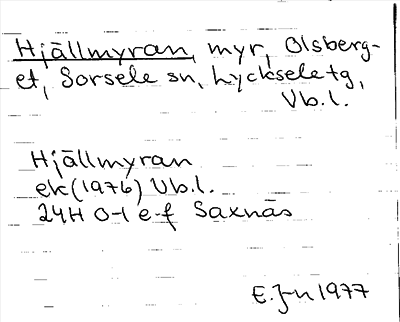 Hjällmyran, myr, Olsberg-
et, Sorsele sn, Lycksele tg,
Vb.l.
Hjällmyran
ek (1976) Vb.l.
24H 0-1 e-f Saxnäs
E. J-n 1977